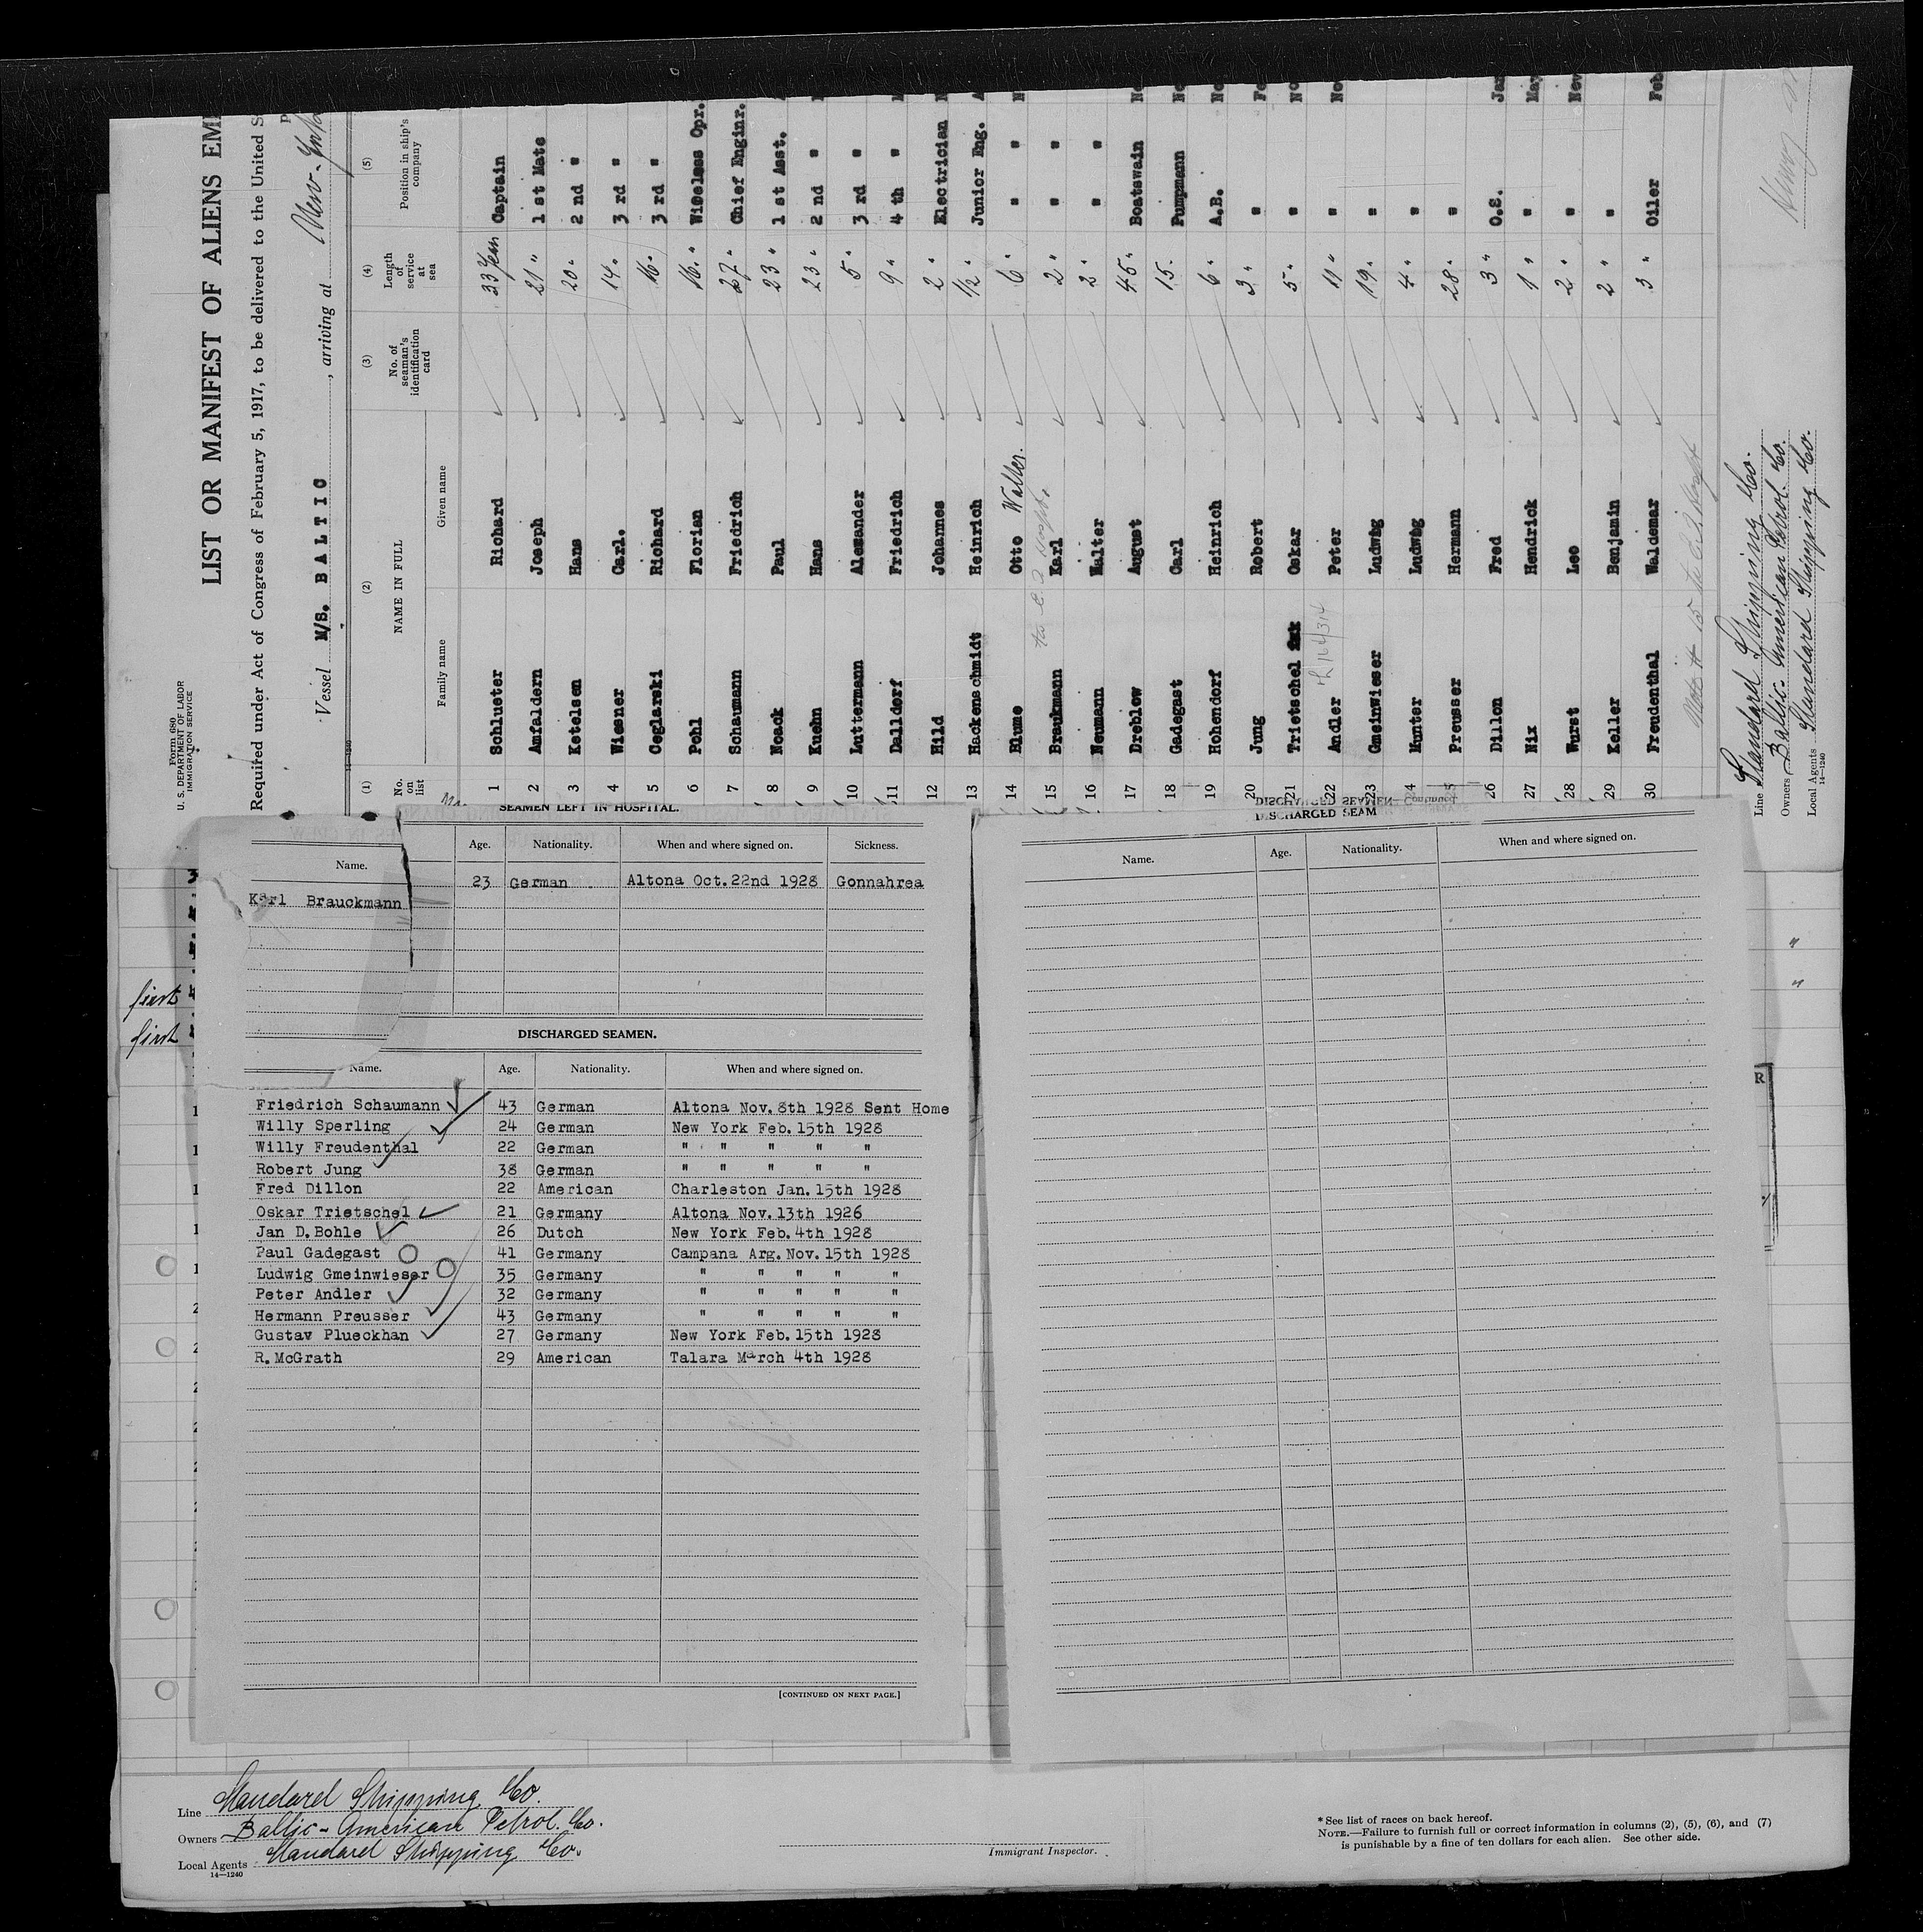 Form 680
U. S. DEPARTMENT OF LABOR
IMMIGRATION SERVICE
LIST OR MANIFEST OF ALIENS EM
Required under Act of Congress of February 5, 1917, to be delivered to the United S
Vessel M/S. BALTIC, arriving at New-
14—1240
(1) (2) (3) (4) (5)
No. on list NAME IN FULL No. of seaman's identification card Length of service at sea Position in ship's company
Family name Given name
1 Schlueter Richard 33 Captain
2 Amfaldern Joseph 21 " 1 st Mate
3 Ketelsen Hans 20 " 2 nd "
4 Wiesner Carl. 14 " 3 rd "
5 Ceglarski Richard 16 " 3 rd "
6 Pohl Florian 16. " Wireless Opr.
7 Schaumann Friedrich 27 " Chief Enginr.
8 Noack Paul 23 " 1 st Asst.
9 Kuehn Hans 23 " 2 nd "
10 Luttermann Alexander 5 " 3 rd "
11 Dalldorf Friedrich 9 " 4 th "
12 Hild Johannes 2 " Electrician
13 Hackenschmidt Heinrich 1/2 " Junior Eng.
14 Blume Otto Walter. 6 " " "
15 Braukmann Karl 2 " " "
16 Neumann Walter 2 " " "
17 Dreblow August 45 " Boatswain
18 Gadegast Carl 15 Pumpmann
19 Hohendorf Heinrich 6 " A.B.
20 Jung Robert 3 " "
21 Trietschel Oskar 5 " "
22 Andler Peter 11 " "
23 Gmeinwieser Ludwig 19 " "
4 Hunter Ludwig 4 " "
5 Preusser Hermann 28 " "
26 Dillon Fred 3 " O.S. Jan
27 Nix Hendrick 1 " " May
28 Wurst Leo 2 " " Nov
29 Keller Benjamin 2 " "
30 Freudenthal Waldemar 3 " Oiler Feb
Line Standard Shipping Co.
Owners Baltic-American Petrol. Co.
Local Agents Standard Shipping Co.
14—1240
SEAMEN LEFT IN HOSPITAL.
Name. Age. Nationality. When and where signed on. Sickness.
Karl Brauckmann 23 German Altona Oct.22nd 1928 Gonnahrea
DISCHARGED SEAMEN.
Name. Age. Nationality. When and where signed on.
Friedrich Schaumann 43 German Altona Nov.8th 1928 Sent Home
Willy Sperling 24 German New York Feb.15th 1928
Willy Freudenthal 22 German " " " " "
Robert Jung 38 German " " " " "
Fred Dillon 22 American Charleston Jan.15th 1928
Oskar Trietschel 21 Germany Altona Nov.13th 1926
Jan D.Bohle 26 Dutch New York Feb.4th 1928
Paul Gadegast 41 Germany Campana Arg.Nov.15th 1928
Ludwig Gmeinwieser 35 Germany " " " " "
Peter Andler 32 Germany " " " " "
Hermann Preusser 43 Germany " " " " "
Gustav Plueckhan 27 Germany New York Feb.15th 1928
R.McGrath 29 American Talara March 4th 1928
[CONTINUED ON NEXT PAGE.]
DISCHARGED SEAMEN—Continued
DISCHARGED SEAM
Name. Age. Nationality. When and where signed on.
first
first
Line Standard Shipping Co.
Owners Baltic-American Petrol. Co.
Local Agents Standard Shipping Co.
14—1240
Immigrant Inspector.
* See list of races on back hereof.
NOTE.—Failure to furnish full or correct information in columns (2), (5), (6), and (7)
is punishable by a fine of ten dollars for each alien. See other side.